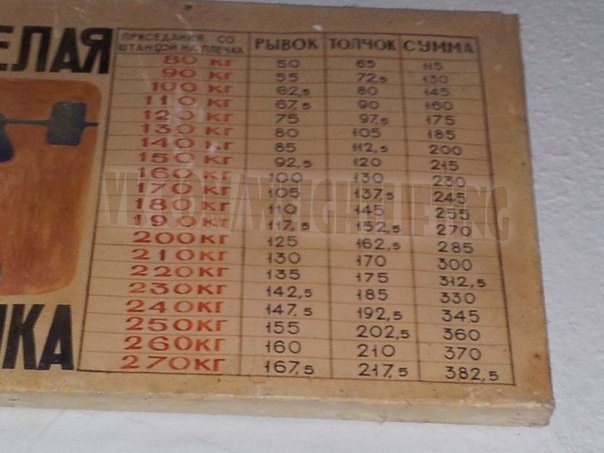 ЕЛАЯ
ПРИСЕДАНИЯ СО
ШТАНГОЙ НА ПЛЕЧАХ РЫВОК ТОЛЧОК СУММА
80 КГ 50 65 115
90 КГ 55 72,5 130
100 КГ 62,5 80 145
110 КГ 67,5 90 160
120 КГ 75 97,5 175
130 КГ 80 105 185
140 КГ 85 112,5 200
150 КГ 92,5 120 215
160 КГ 100 130 230
170 КГ 105 137,5 245
180 КГ 110 145 255
190 КГ 117,5 152,5 270
200 КГ 125 162,5 285
210 КГ 130 170 300
220 КГ 135 175 312,5
230 КГ 142,5 185 330
240 КГ 147,5 192,5 345
250 КГ 155 202,5 360
260 КГ 160 210 370
270 КГ 167,5 217,5 382,5
ИКА